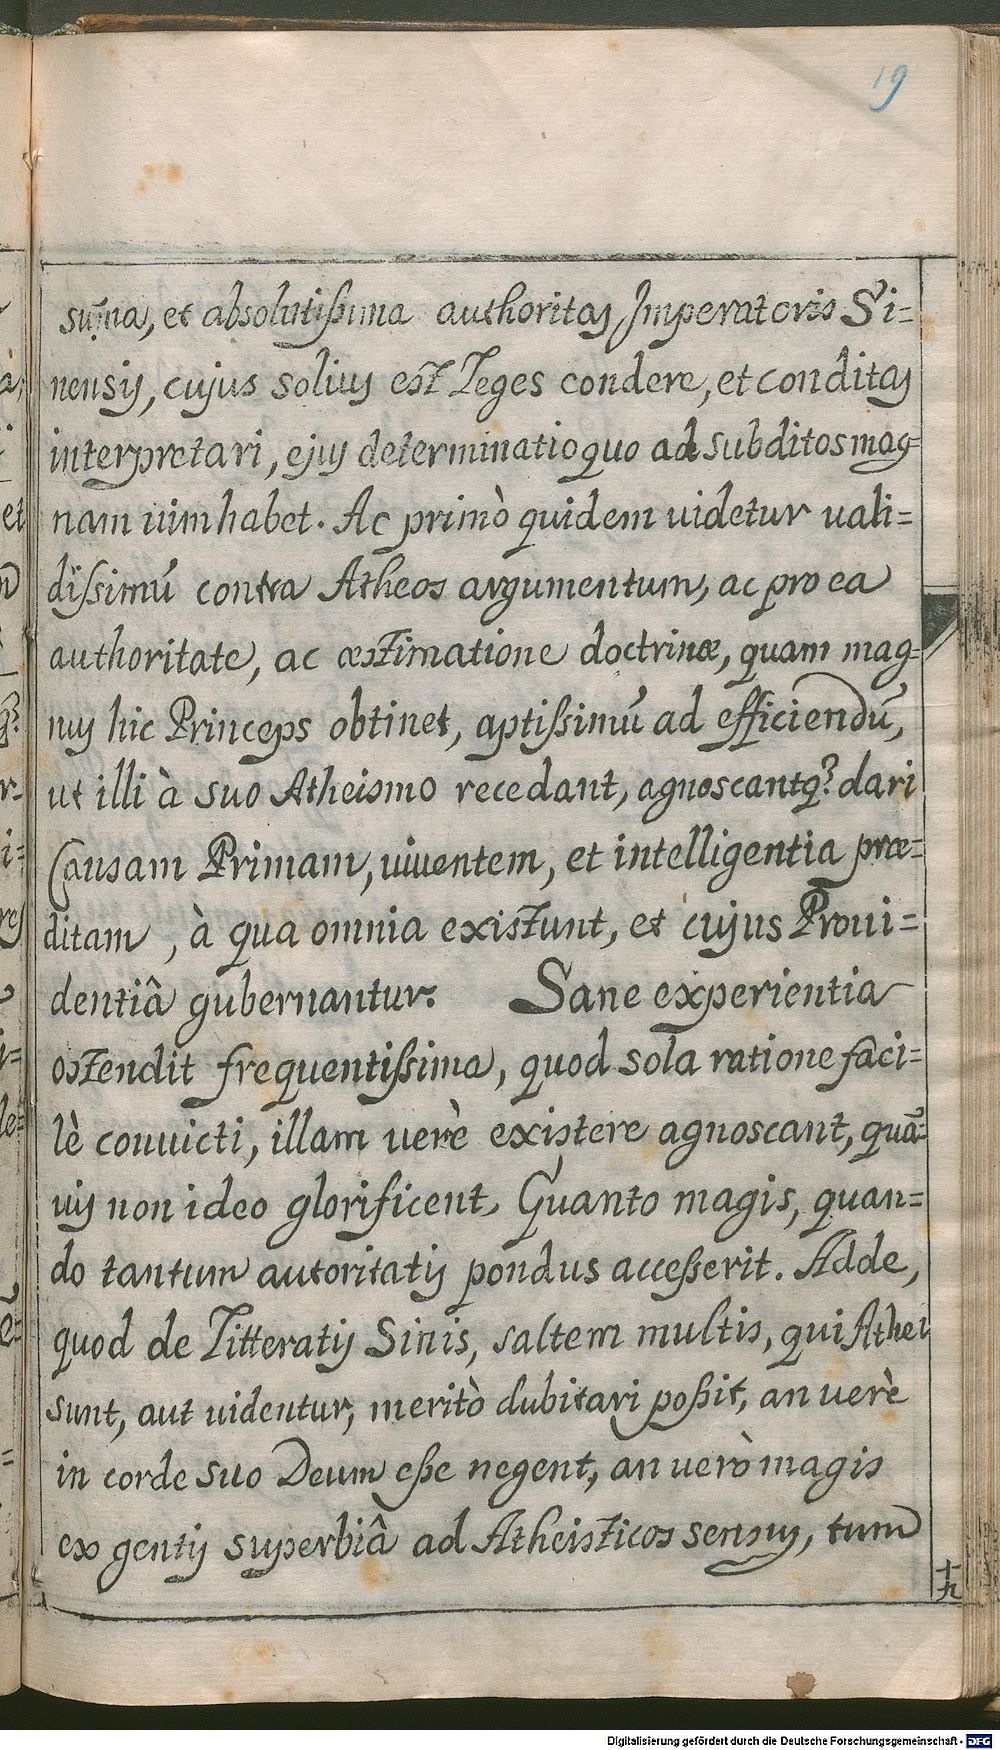 19
sum̄a, et absolutißima authoritas Imperatoris Si=
nensis, cujus solius est Leges condere, et conditas
interpretari, ejus determinatio quo ad subditos mag-
nam uim habet. Ac primò quidem uidetur uali=
dißimū contra Atheos argumentum, ac pro ea
authoritate, ac æstimatione doctrinæ, quam mag-
nus hic Princeps obtinet, aptißimū ad efficiendū,
ut illi à suo Atheismo recedant, agnoscantq́₃ dari
Causam Primam, uiuentem, et intelligentia præ=
ditam, à qua omnia existunt, et cujus Proui=
dentiâ gubernantur. Sane experientia
ostendit frequentißima, quod sola ratione faci=
lè conuicti, illam uerè existere agnoscant, quā=
uis non ideo glorificent. Quanto magis, quan=
do tantum autoritatis pondus acceßerit. Adde,
quod de Litteratis Sinis, saltem multis, qui Athei
sunt, aut uidentur, meritò dubitari poßit, an uerè
in corde suo Deum eße negent, an uerò magis
ex gentis superbiâ ad Atheisticos sensus, tum
十九
Digitalisierung gefördert durch die Deutsche Forschungsgemeinschaft - DFG